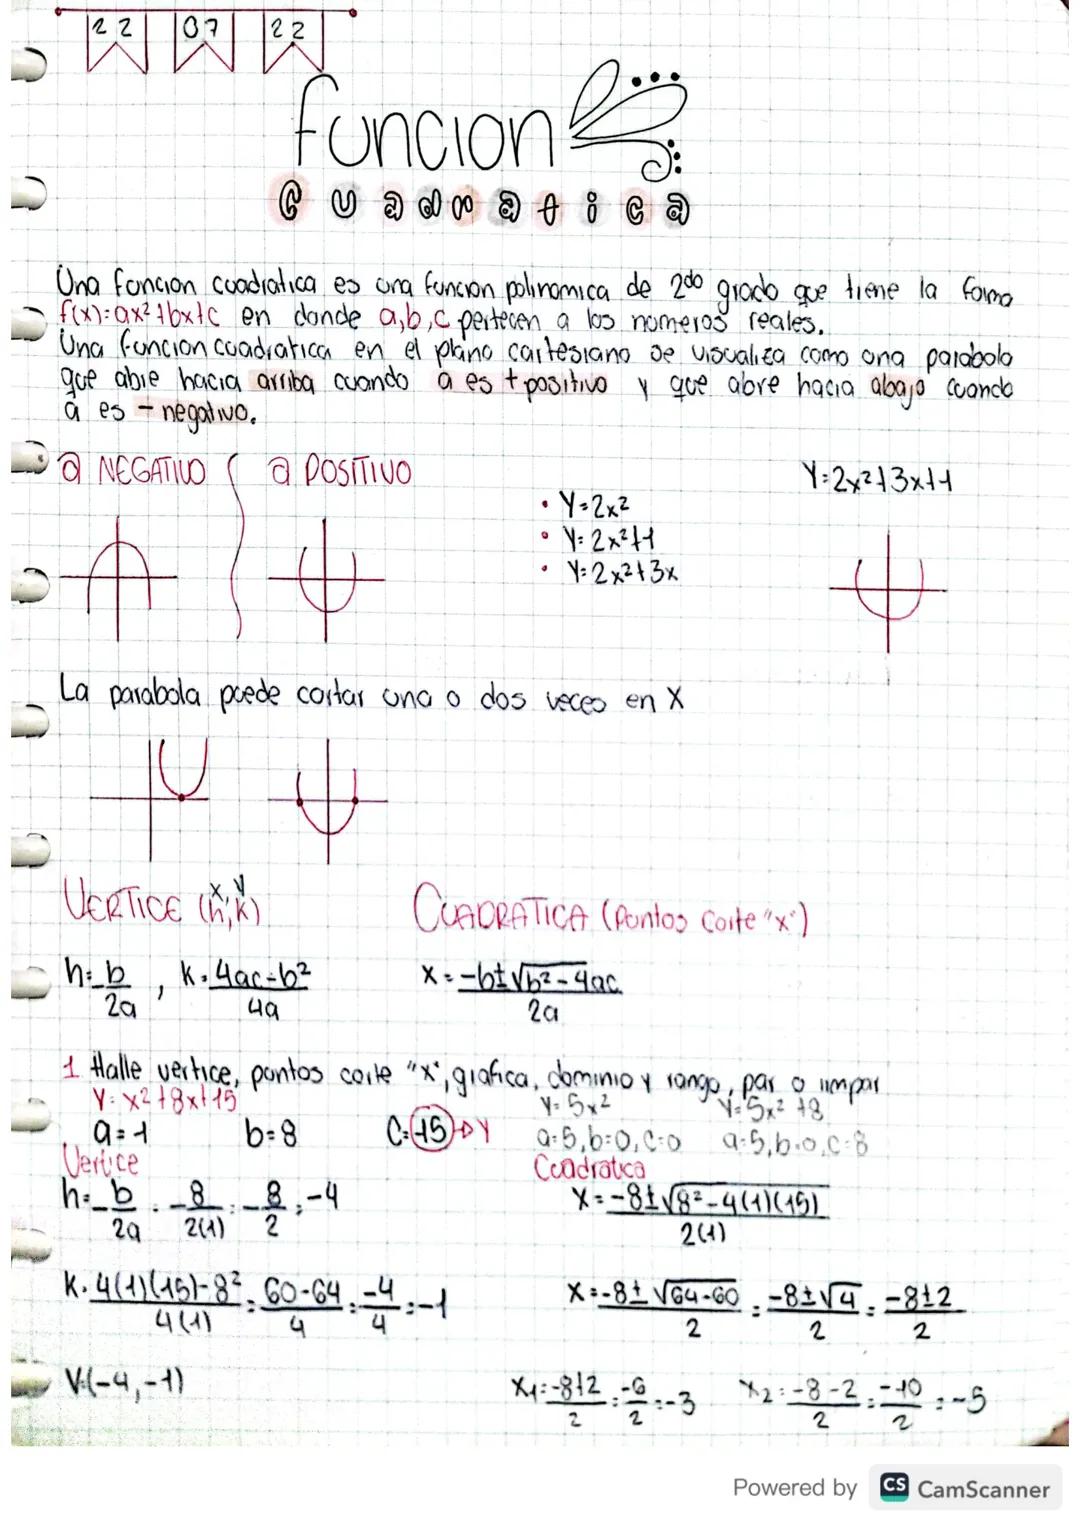 22 07 22
funcion
Cuadratica
Una funcion cuadratica es una funcion polinomica de 2do grado que tiene la forma
f(x)=ax²+bx+c en donde a,b,c pertecen a los numeros reales.
Una funcion cuadratica en el plano cartesiano se visualiza como una parabola
que abre hacia arriba cuando a es + positivo y que abre hacia abajo cuando
a es - negativo.
a NEGATIVO a POSITIVO
Y=2x²+3x+1
• Y=2x²
• Y=2x²+1
• Y=2x²+3x
La parabola puede cortar una o dos veces en X
x y
VERTICE (h,k) CUADRATICA (Puntos Corte "x")
h=-b/2a , k=4ac-b²/4a x=-b±√b²-4ac/2a
1 Halle vertice, puntos corte "x", grafica, dominio y rango, par o impar
Y=x²+8x+15 Y=5x² Y=5x²+8
a=1 b=8 C=15→Y a=5,b=0,C=0 a=5,b=0,C=8
Vertice Cuadratica
h=-b/2a=-8/2(1)=-8/2=-4 x=-8±√8²-4(1)(15)/2(1)
k=4(1)(15)-8²/4(1)=60-64/4=-4/4=-1 x=-8±√64-60/2=-8±√4/2=-8±2/2
V=(-4,-1) X1=-8+2/2=-6/2=-3 X2=-8-2/2=-10/2=-5
Powered by CS CamScanner